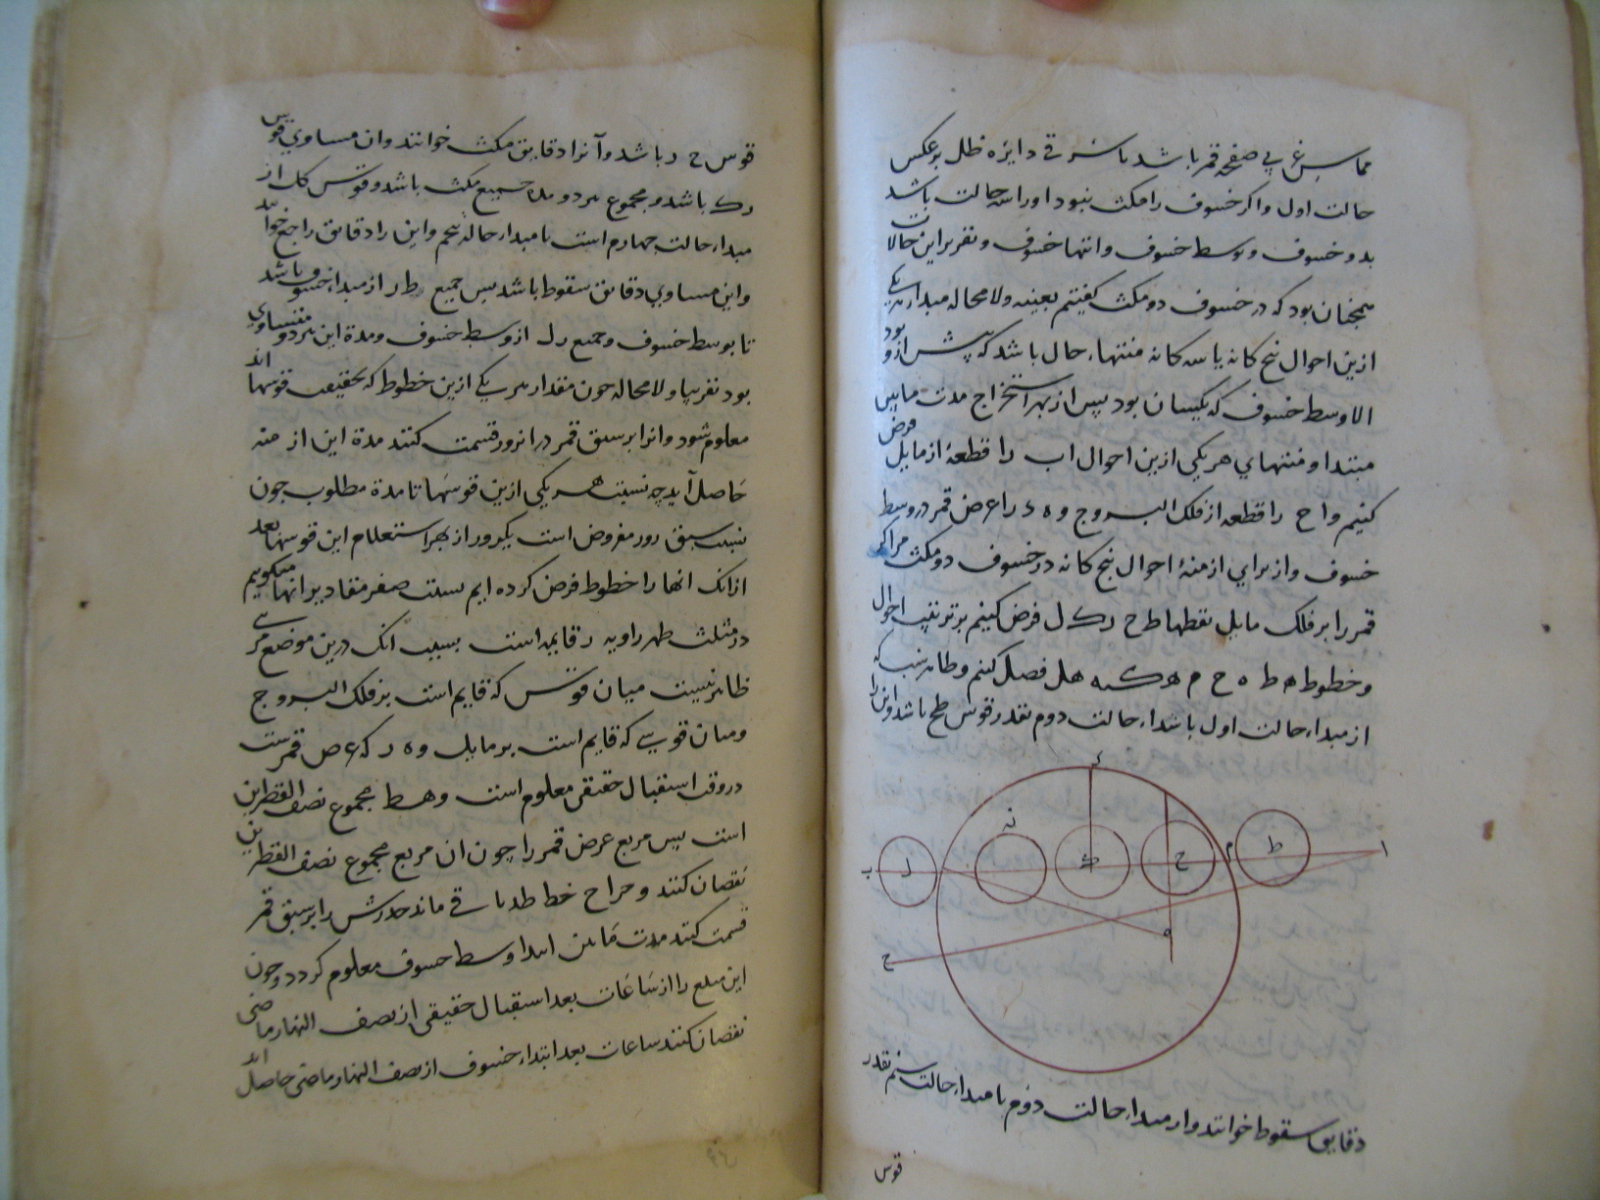 مماس غربی صفحه قمر باشد با شرقی دایره ظل بر عکس
حالت اول و اکر خسوف را مکث نبود او را سه حالت باشد
بدو خسوف و وسط خسوف و انتهاء خسوف و تقریر این حالات
همجنان بود که در خسوف دو مکث کفتیم بعینه و لا محاله مبدا هر یکی
ازین احوال پنج کانه یا سه کانه منتهاء حال باشد که پیش ازو بود
الا وسط خسوف که یکسان بود پس از بهر استخراج مدت مابین
مبتدا و منتهای هر یکی ازین احوال اب را قطعهٔ از مایل فرض
کنیم و ا ح را قطعه از فلک البروج و ه ر را عرض قمر در وسط
خسوف و از برای ازمنهٔ احوال پنج کانه در خسوف دو مکث مراکز
قمر را بر فلک مایل نقطهاء ط ح ر ک ل فرض کنیم بر ترتیب احوال
و خطوط ه ط ه ح ه م ه ک ه ل فصل کنیم و ظاهرست که
از مبداء حالت اول باشد تا مبداء حالت دوم بقدر قوس ط ح باشد و این را
ل
ک
ح
م
ط
ا
ب
ه
ح
دقایق سقوط خوانند و از مبداء حالت دوم تا مبداء حالت سیم بقدر
قوس
قوس ح ر باشد و آنرا دقایق مکث خوانند و ان مساوی قوس
ر ک باشد و مجموع هر دو مدت جمیع مکث باشد و قوس ک ل از
مبداء حالت چهارم است تا مبداء حاله پنجم و این را دقایق راجع خوانند
و این مساوی دقایق سقوط باشد پس جمیع ط ر از مبداء خسوف باشد
تا بوسط خسوف و جمیع ر ل از وسط خسوف و مدة این هر دو متساوی
بود تقریبا و لا محاله جون مقدار هر یکی ازین خطوط که بحقیقت قوسها اند
معلوم شود و انرا بر سبق قمر در انروز قسمت کنند مدة این ازمنه
حاصل آید چه نسبت هر یکی ازین قوسها تا مدة مطلوب جون
نسبت سبق روز مفروض است بیکروز از بهر استعلام این قوسها بعد
از انک انها را خطوط فرض کرده ایم بسبب صغر مقادیر انها میکوییم
در مثلث ط ه ر زاویه ر قایمه است بسبب انک درین موضع فرقی
ظاهر نیست میان قوسی که قایم است بر فلک البروج
و میان قوسی که قایم است بر مایل و ه ر که عرض قمرست
در وقت استقبال حقیقی معلوم است و ه ط مجموع نصف القطرین
است پس مربع عرض قمر را چون از مربع مجموع نصف القطرین
نقصان کنند و جراح خط ط ر باقی ماند جذرش را بر سبق قمر
قسمت کنند مدت مابین ابتدا و وسط خسوف معلوم کردد و جون
این مبلغ را از ساعات بعد استقبال حقیقی از نصف النهار ماضی
نقصان کنند ساعات بعد ابتداء خسوف از نصف النهار ماضی حاصل اید